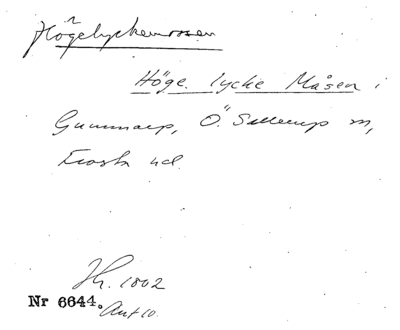 Högelyckemosen
Höge lycke Måsen i
Gummarp, Ö. Sallerup sn,
Frosta hd.
Th. 1002
Nr 6644. Ant 10.